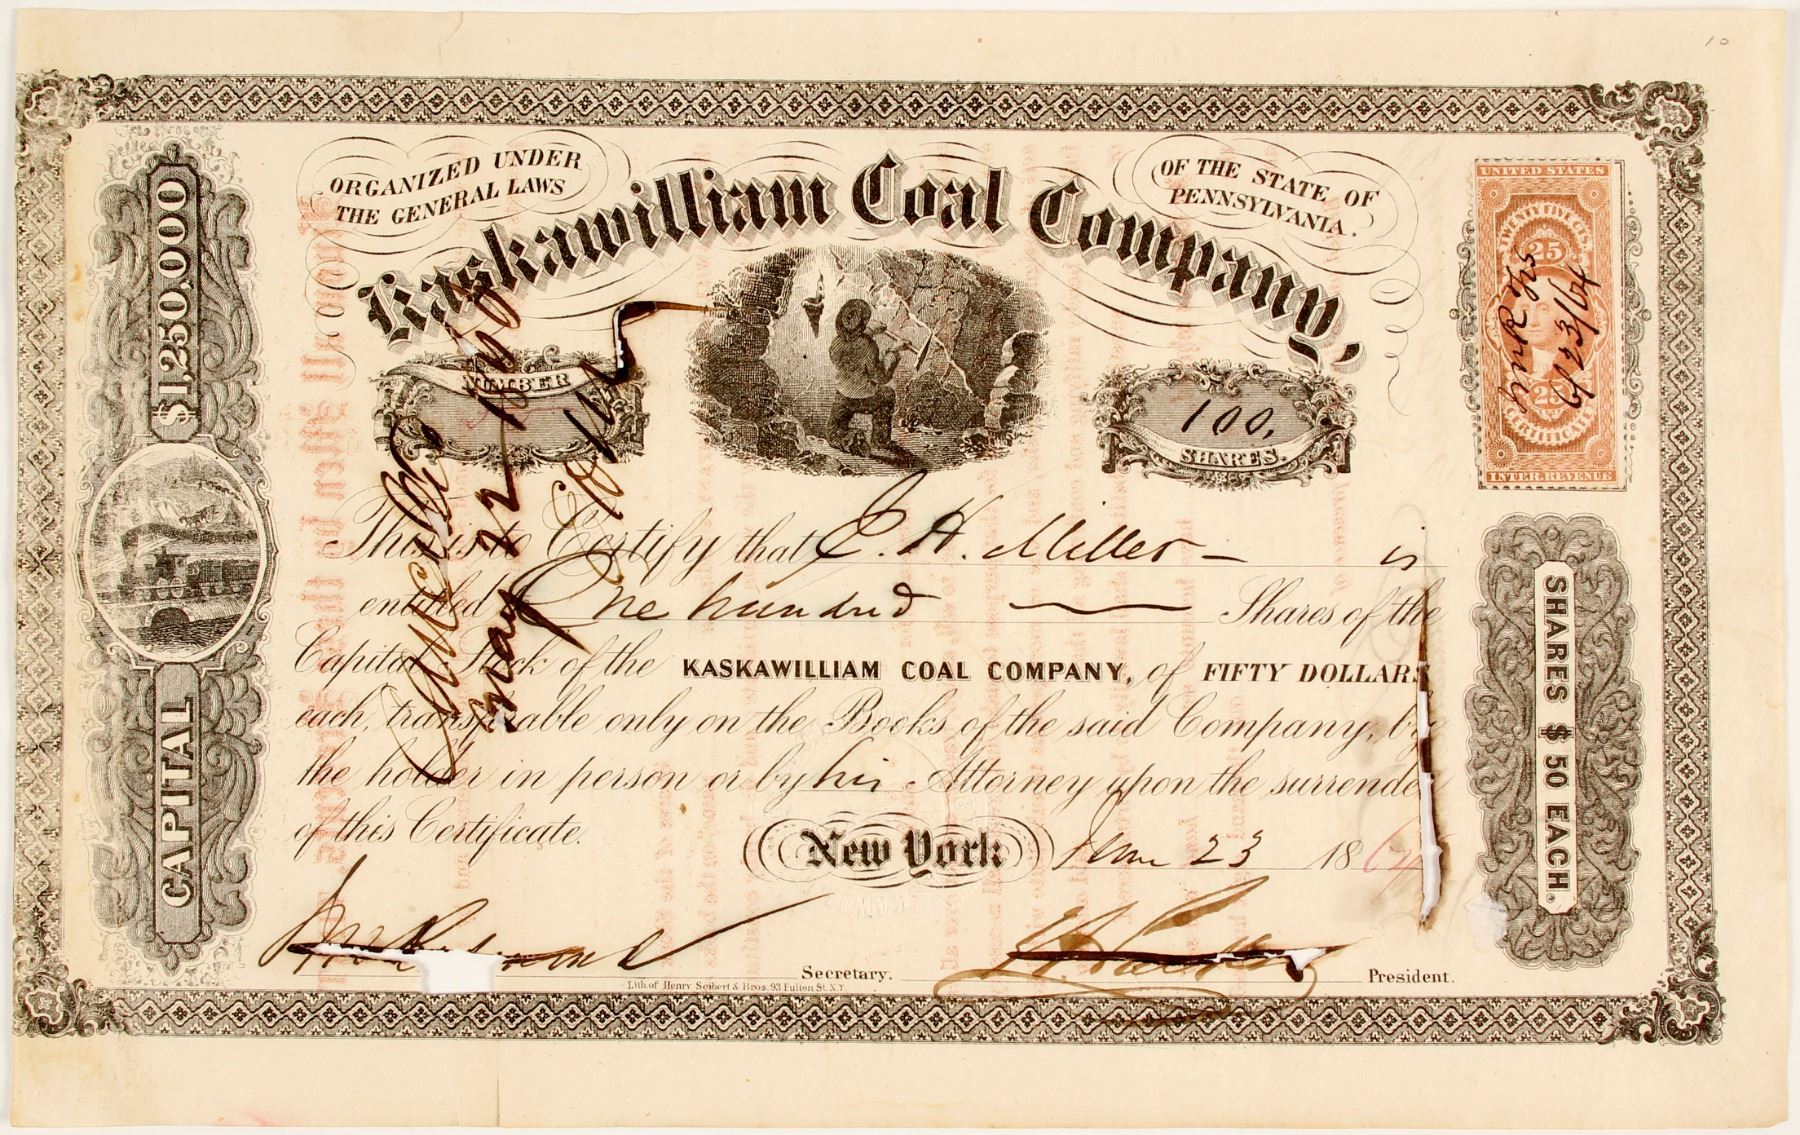 10
ORGANIZED UNDER
THE GENERAL LAWS
OF THE STATE OF
PENNSYLVANIA.
Kaskawilliam Coal Company,
NUMBER
100,
SHARES.
UNITED STATES
TWENTY FIVE CTS.
25
25
CERTIFICATE
INTER. REVENUE
6/23/64
$1,250,000
CAPITAL
SHARES $50 EACH.
This is to Certify that E. H. Miller is
entitled One hundred Shares of the
Capital Stock of the KASKAWILLIAM COAL COMPANY, of FIFTY DOLLARS
each, transferable only on the Books of the said Company, by
the holder in person or by his Attorney upon the surrender
of this Certificate.
New York June 23 1864
Secretary.
President.
Lith. of Henry Seibert & Bros. 93 Fulton St. N.Y.
Cancelled
May